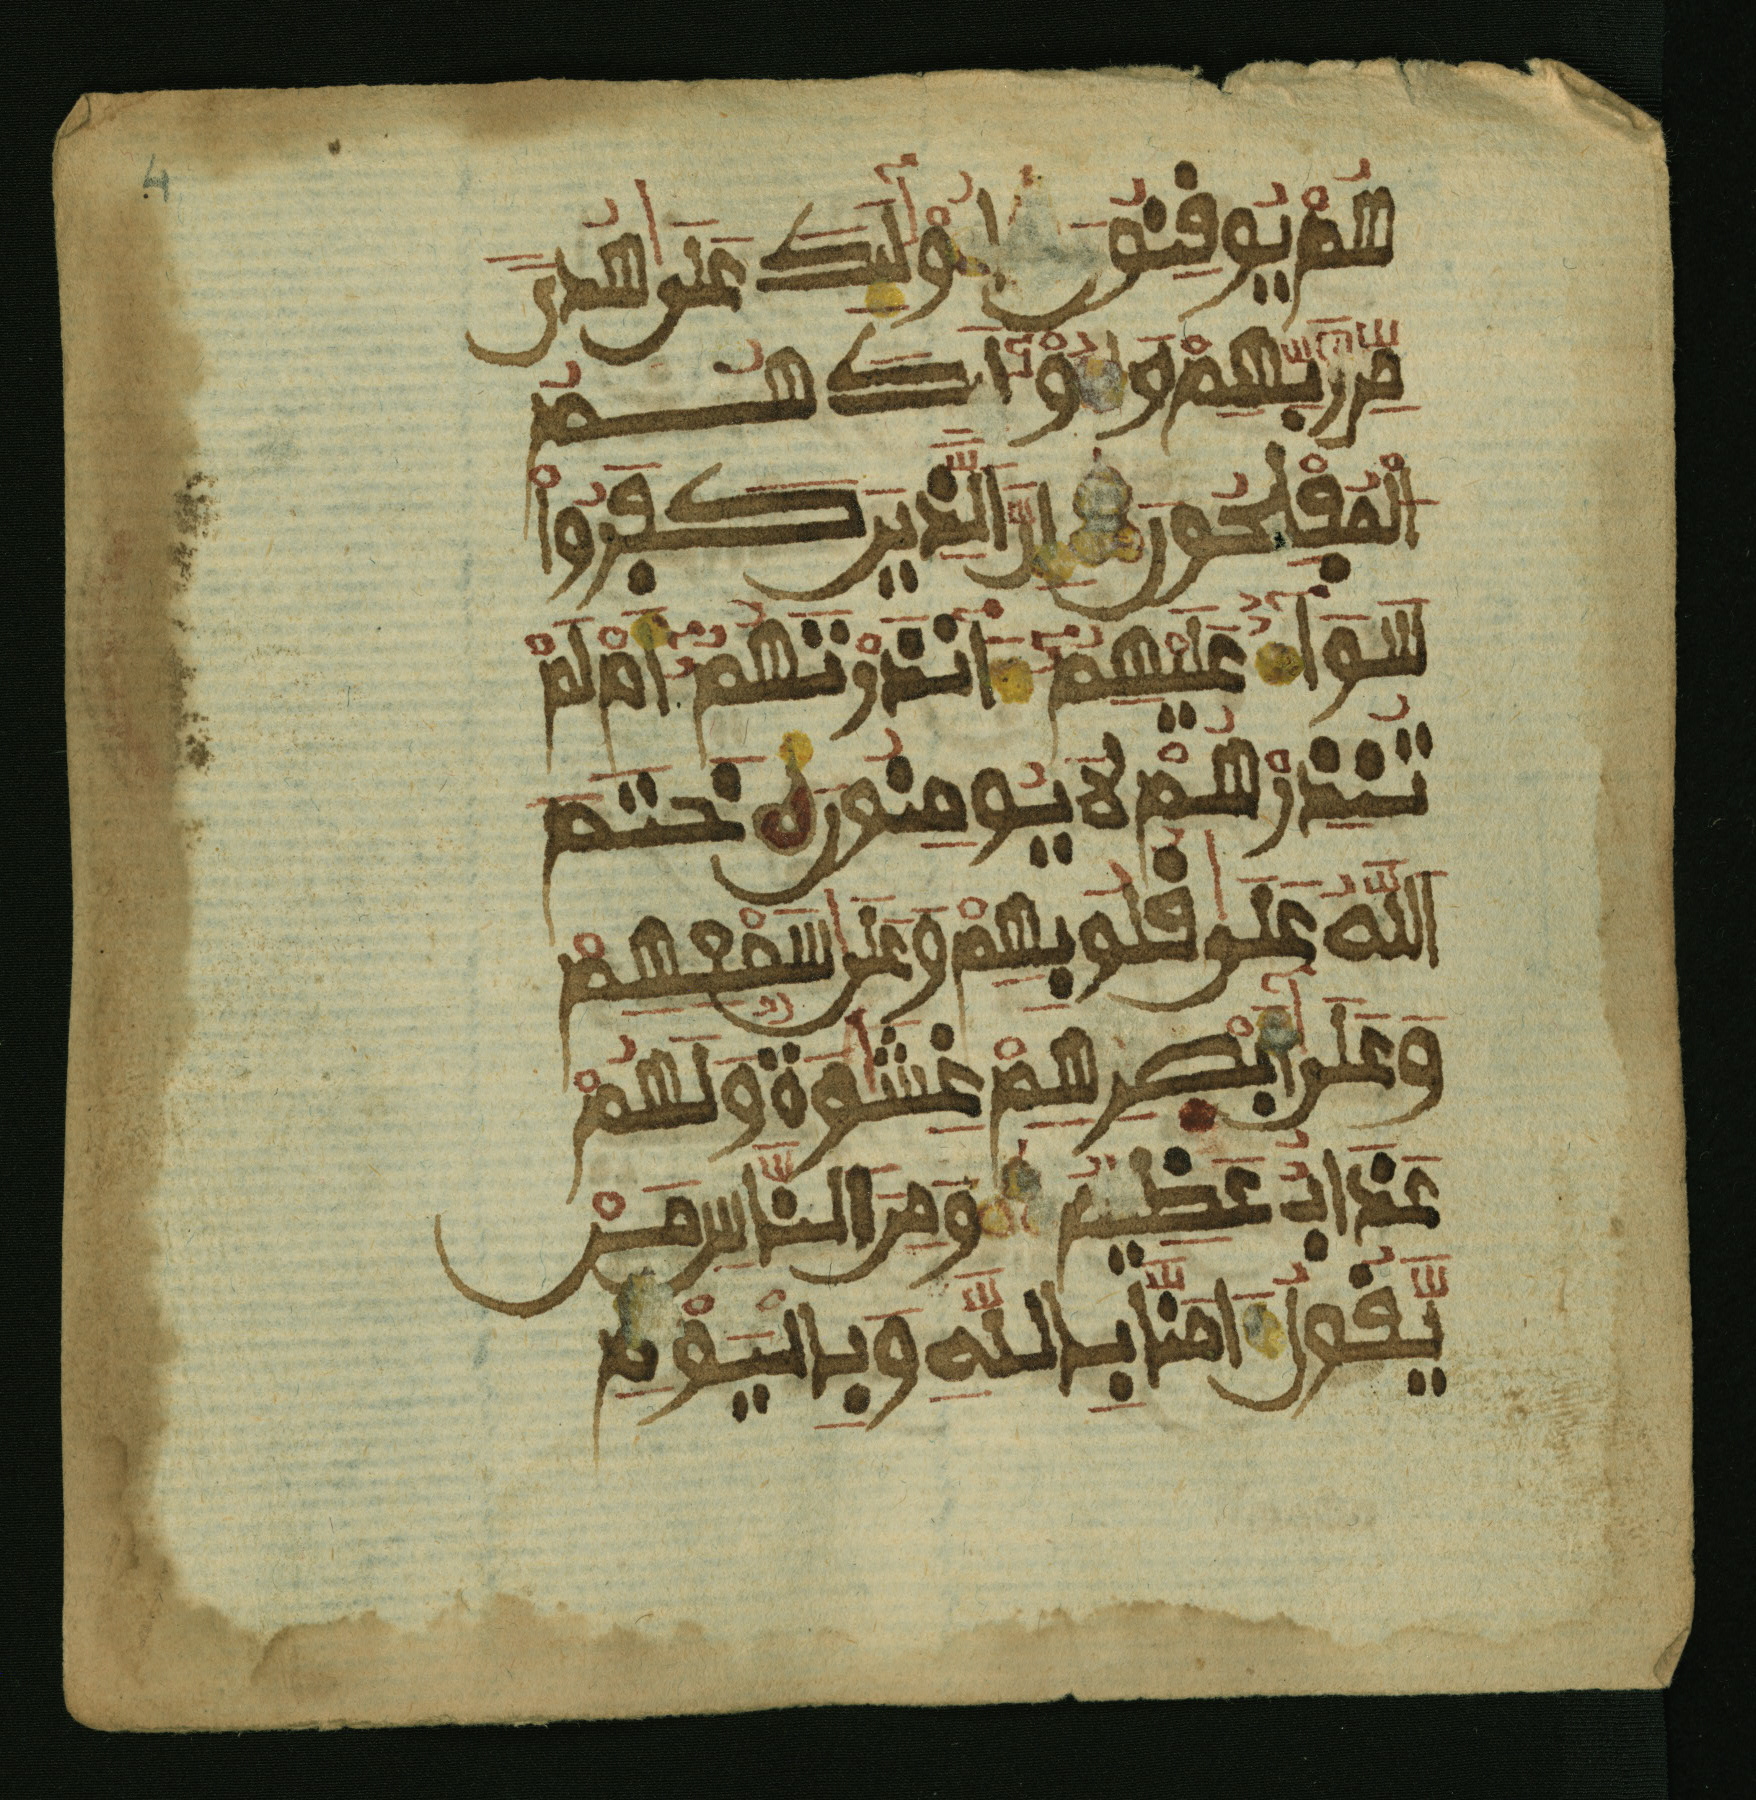 4
هُمْ يُوقِنُونَ أُوْلَٰٓئِكَ عَلَىٰ هُدًى
مِّن رَّبِّهِمْ وَأُوْلَٰٓئِكَ هُمُ
اُ۬لْمُفْلِحُونَ إِنَّ اَ۬لَّذِينَ كَفَرُواْ
سَوَآءٌ عَلَيْهِمُۥٓ ءَٰا۬نذَرْتَهُمُۥٓ أَمْ لَمْ
تُنذِرْهُمْ لَا يُومِنُونَ خَتَمَ
اَ۬للَّهُ عَلَىٰ قُلُوبِهِمْ وَعَلَىٰ سَمْعِهِمْ
وَعَلَىٰٓ أَبْصَٰرِهِمْ غِشَٰوَةٌ وَلَهُمْ
عَذَابٌ عَظِيمٌ وَمِنَ اَ۬لنَّاسِ مَنْ
يَّقُولُ ءَامَنَّا بِاللَّهِ وَبِالْيَوْمِ